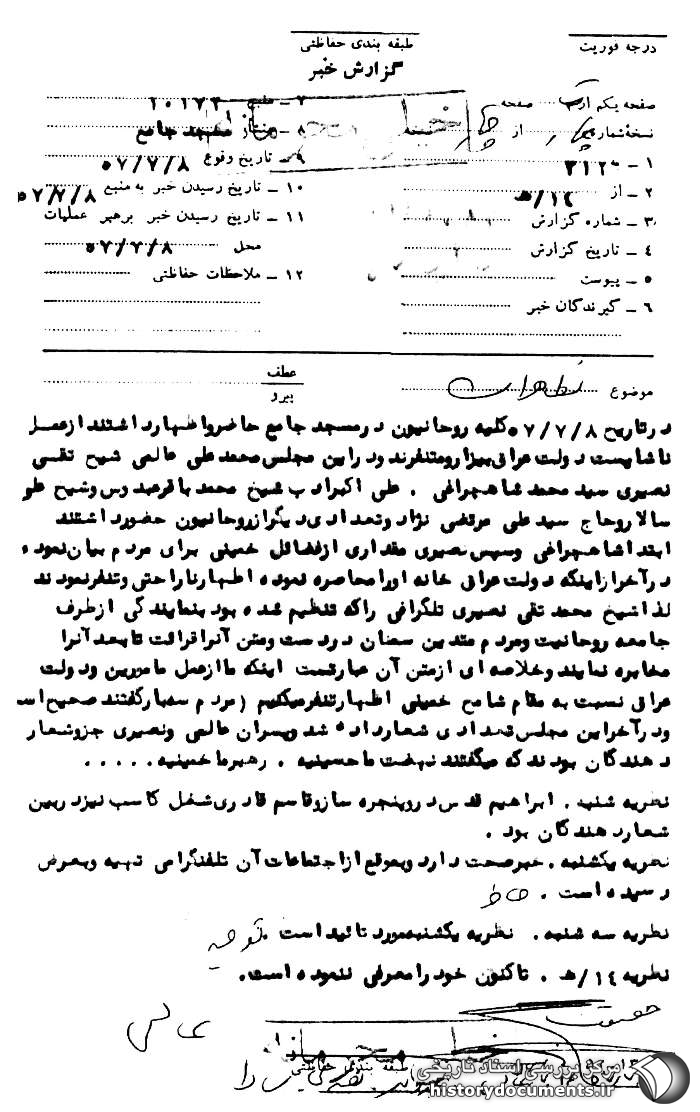 درجه فوریت
طبقه بندی حفاظتی
گزارش خبر
صفحه یکم از صفحه
نسخهٔ شماره از نسخه
۱ ـ
۲ ـ از ۱۴/ﻫ
۳ ـ شماره گزارش
۴ ـ تاریخ گزارش
۵ ـ پیوست
۶ ـ گیرندگان خبر
۷ ـ منبع ۱۰۱۷۲
۸ ـ منشاء مسجد جامع
۹ ـ تاریخ وقوع ۵۷/۷/۸
۱۰ ـ تاریخ رسیدن خبر به منبع ۵۷/۷/۸
۱۱ ـ تاریخ رسیدن خبر برهبر عملیات
محل ۵۷/۷/۸
۱۲ ـ ملاحظات حفاظتی
موضوع تظاهرات
عطف
پیرو
درتاریح ۵۷/۷/۸ کلیه روحانیون درمسجد جامع حاضرواظهارداشتند ازعمل
ناشایست دولت عراق بیزارومتنفرند ودراین مجلس محمدعلی عالمی شیح تقی
نصیری سید محمد شاهچراغی . علی اکبراد ب شیخ محمد باقرعبدوس وشیح علی
سالاروحاج سیدعلی مرتضی نژاد وتعدادی دیگرازروحانیون حضورداشتند
ابتداشاهچراغی وسپس نصیری مقداری ازفضائل خمینی برای مردم بیان نموده
درآخرازاینکه دولت عراق خانه اورامحاصره نموده اظهارناراحتی وتنفرنمودند
لذاشیخ محمد تقی نصیری تلگرافی راکه تنظیم شده بود بنمایندگی ازطرف
جامعه روحانیت ومردم متدین سمنان دردست ومتن آنراقرائت تابعدآنرا
مخابره نمایند وخلاصه ای ازمتن آن عبارتست اینکه ماازعمل مامورین ودولت
عراق نسبت به مقام شامخ خمینی اظهارتنفرمیکنیم (مردم سه بارگفتند صحیح است
ودرآخراین مجلس تعدادی شعارداده شد وپسران عالمی ونصیری جزوشعار
دهندگان بودند که میگفتند نهضت ماحسینیه . رهبرماخمینیه .....
نظریه شنبه . ابراهیم قدس دروپنجره سازوقاسم قادری شغل کاسب نیزدربین
شعاردهندگان بود .
نظریه یکشنبه . خبرصحت دارد وبموقع ازاجتماعات آن تلفنگرامی تهیه وبعرض
رسیده است .
نظریه سه شنبه . نظریه یکشنبه مورد تائید است . توجیه
نظریه ۱۴/ﻫ . تاکنون خود رامعرفی ننموده است.
طبقه بندی حفاظتی
مرکز بررسی اسناد تاریخی
historydocuments.ir